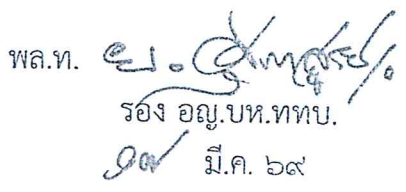 พล.ท.
รอง อญ.บห.ททบ.
๑๗ มี.ค. ๖๙